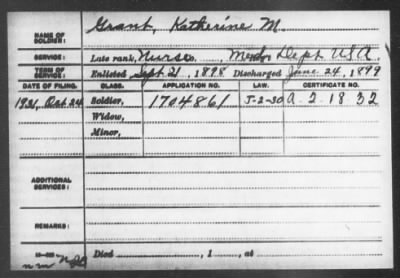 Grant, Katherine M.
NAME OF SOLDIER:
SERVICE: Late rank, Nurse Co. , Med. Dept USA
TERM OF SERVICE: Enlisted Sept 21, 1898 Discharged June 24, 1899
DATE OF FILING. CLASS. APPLICATION NO. LAW. CERTIFICATE NO.
1921, Oct 24 Soldier, 1704861 J-2-30 A-2-18-32
Widow,
Minor,
ADDITIONAL SERVICES:
REMARKS:
Died , 1 , at